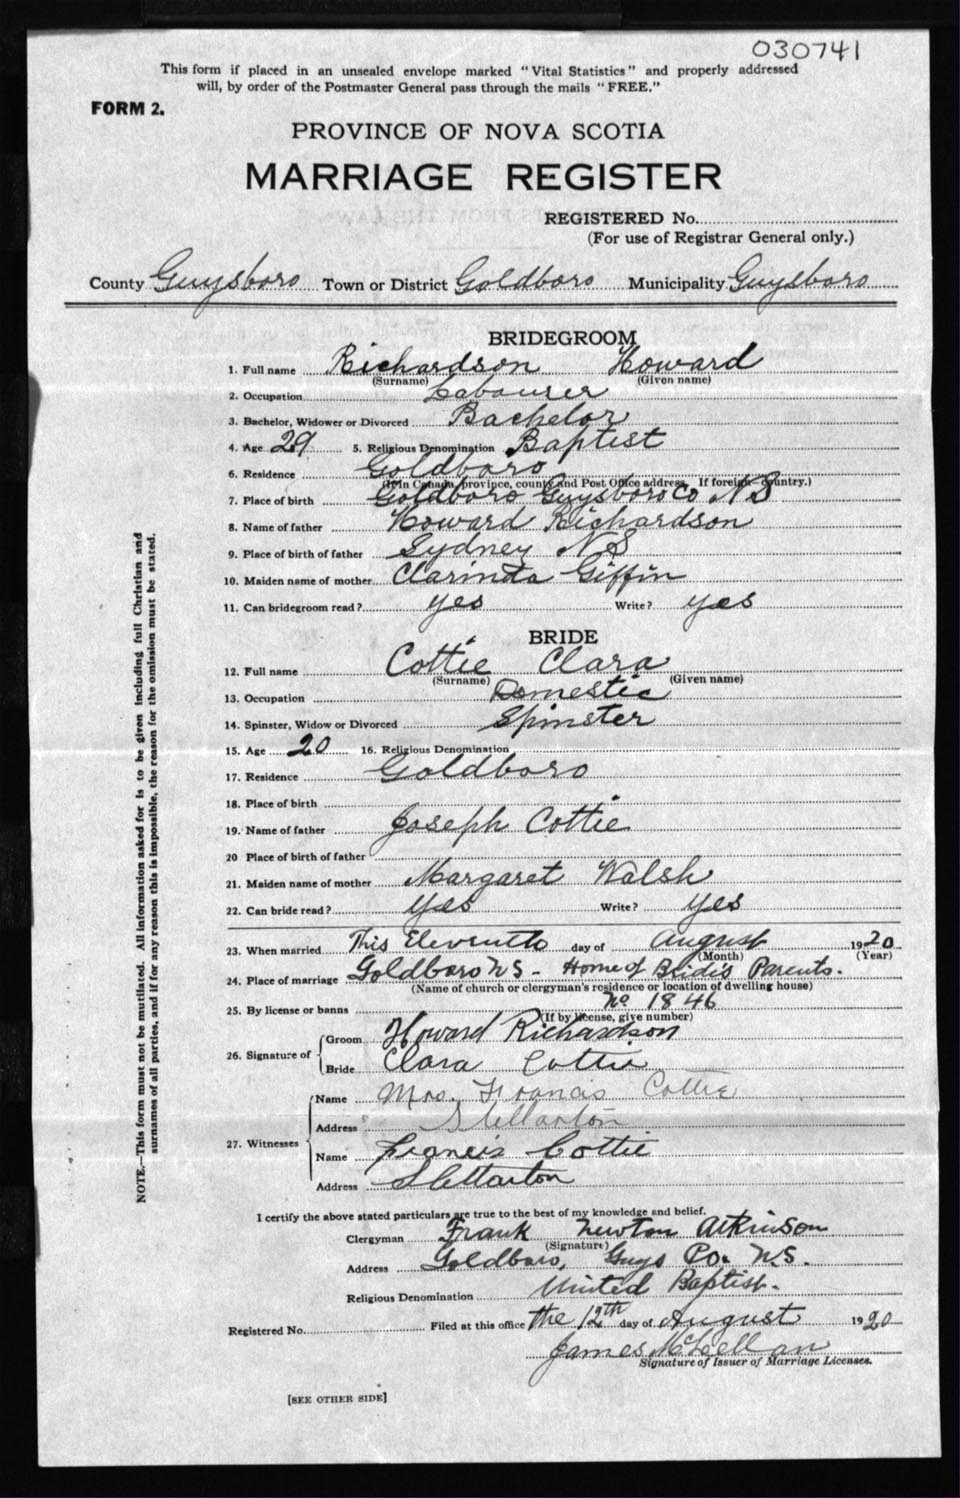 030741
This form if placed in an unsealed envelope marked "Vital Statistics" and properly addressed
will, by order of the Postmaster General pass through the mails "FREE."
FORM 2.
PROVINCE OF NOVA SCOTIA
MARRIAGE REGISTER
REGISTERED No.
(For use of Registrar General only.)
County Guysboro Town or District Goldboro Municipality Guysboro
BRIDEGROOM
1. Full name Richardson Howard
(Surname) (Given name)
2. Occupation Labourer
3. Bachelor, Widower or Divorced Bachelor
4. Age 29 5. Religious Denomination Baptist
6. Residence Goldboro
(If in Canada, province, county and Post Office address. If foreign country.)
7. Place of birth Goldboro Guysboro Co N S
8. Name of father Howard Richardson
9. Place of birth of father Sydney N S
10. Maiden name of mother Clarinda Giffin
11. Can bridegroom read? yes Write? yes
BRIDE
12. Full name Cottie Clara
(Surname) (Given name)
13. Occupation Domestic
14. Spinster, Widow or Divorced Spinster
15. Age 20 16. Religious Denomination
17. Residence Goldboro
18. Place of birth
19. Name of father Joseph Cottie
20 Place of birth of father
21. Maiden name of mother Margaret Walsh
22. Can bride read? yes Write? yes
23. When married This Eleventh day of August 1920
(Month) (Year)
24. Place of marriage Goldboro N S - Home of Bride's Parents.
(Name of church or clergyman's residence or location of dwelling house)
25. By license or banns No 1846
(If by license, give number)
26. Signature of Groom Howard Richardson
Bride Clara Cottie
27. Witnesses Name Mrs. Francis Cottie
Address Stellarton
Name Francis Cottie
Address Stellarton
I certify the above stated particulars are true to the best of my knowledge and belief.
Clergyman Frank Newton Atkinson
(Signature)
Address Goldboro, Guys Co. N.S.
Religious Denomination United Baptist.
Registered No. Filed at this office the 12th day of August 1920
James McLellan
Signature of Issuer of Marriage Licenses.
[SEE OTHER SIDE]
NOTE.—This form must not be mutilated. All information asked for is to be given including full Christian and
surnames of all parties, and if for any reason this is impossible, the reason for the omission must be stated.